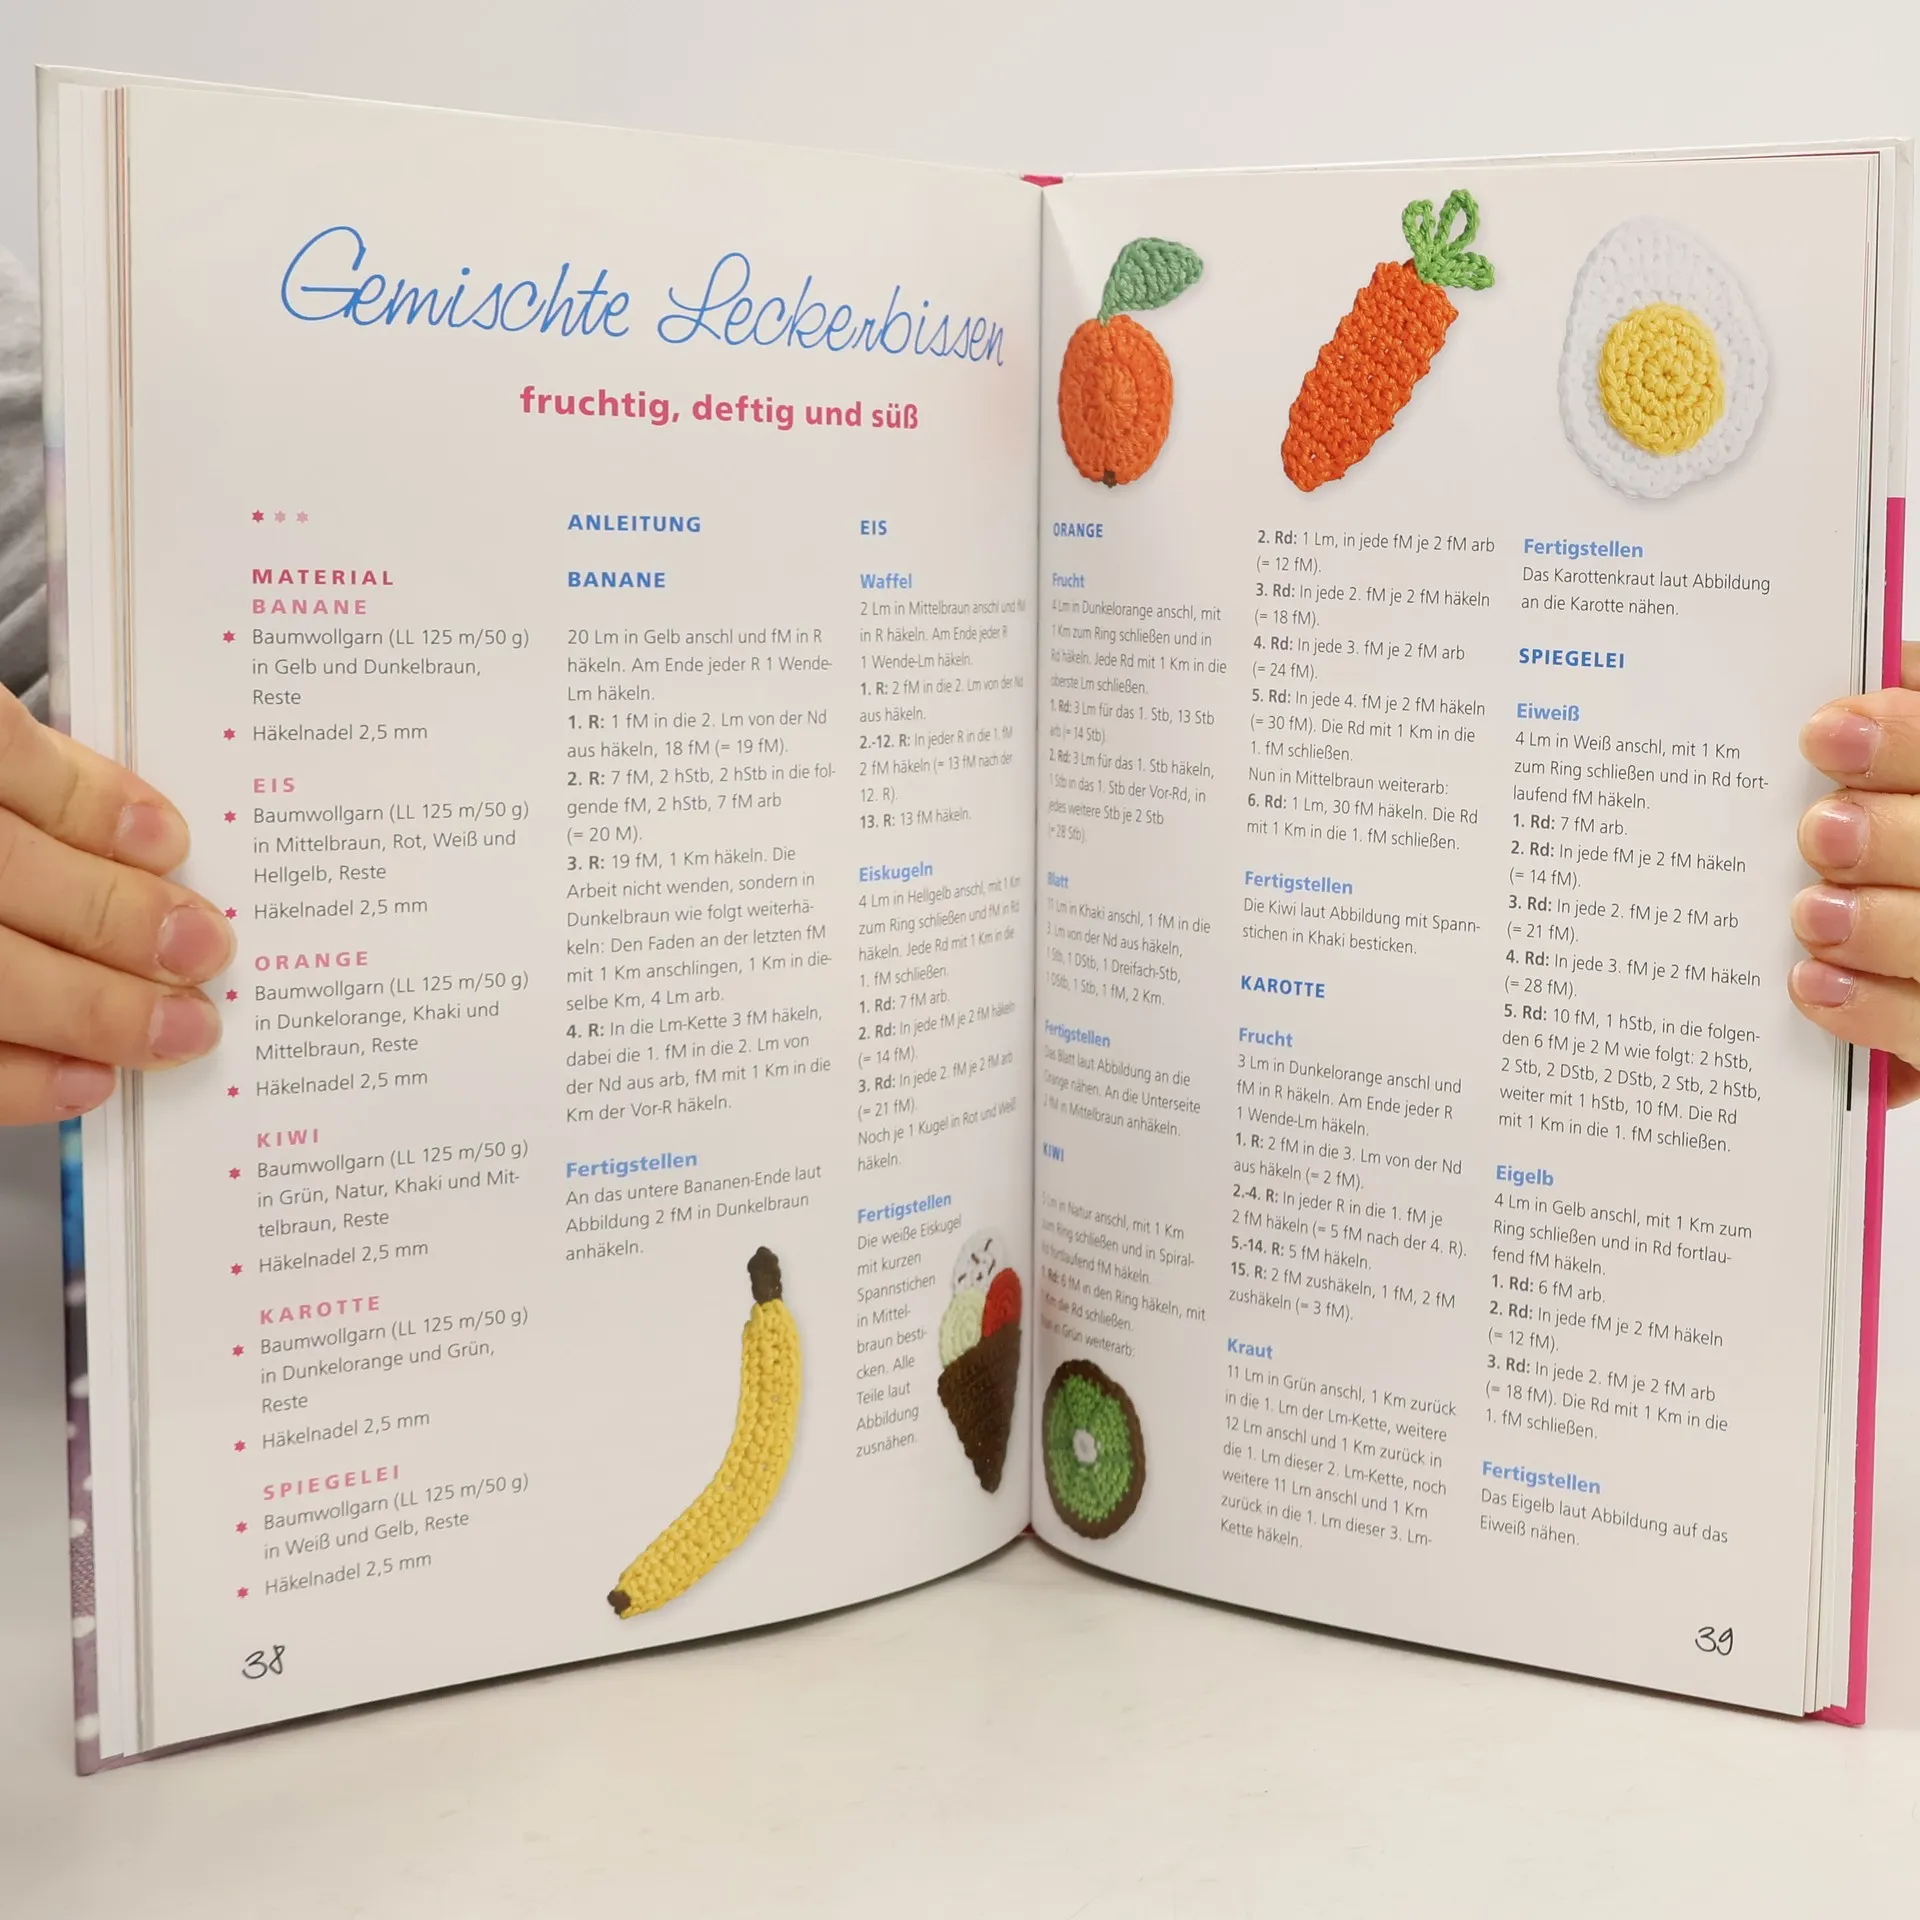 Gemischte Leckerbissen
fruchtig, deftig und süß
MATERIAL
BANANE
Baumwollgarn (LL 125 m/50 g)
in Gelb und Dunkelbraun,
Reste
Häkelnadel 2,5 mm
EIS
Baumwollgarn (LL 125 m/50 g)
in Mittelbraun, Rot, Weiß und
Hellgelb, Reste
Häkelnadel 2,5 mm
ORANGE
Baumwollgarn (LL 125 m/50 g)
in Dunkelorange, Khaki und
Mittelbraun, Reste
Häkelnadel 2,5 mm
KIWI
Baumwollgarn (LL 125 m/50 g)
in Grün, Natur, Khaki und Mit-
telbraun, Reste
Häkelnadel 2,5 mm
KAROTTE
Baumwollgarn (LL 125 m/50 g)
in Dunkelorange und Grün,
Reste
Häkelnadel 2,5 mm
SPIEGELEI
Baumwollgarn (LL 125 m/50 g)
in Weiß und Gelb, Reste
Häkelnadel 2,5 mm
38
ANLEITUNG
BANANE
20 Lm in Gelb anschl und fM in R
häkeln. Am Ende jeder R 1 Wende-
Lm häkeln.
1. R: 1 fM in die 2. Lm von der Nd
aus häkeln, 18 fM (= 19 fM).
2. R: 7 fM, 2 hStb, 2 hStb in die fol-
gende fM, 2 hStb, 7 fM arb
(= 20 M).
3. R: 19 fM, 1 Km häkeln. Die
Arbeit nicht wenden, sondern in
Dunkelbraun wie folgt weiterhä-
keln: Den Faden an der letzten fM
mit 1 Km anschlingen, 1 Km in die-
selbe Km, 4 Lm arb.
4. R: In die Lm-Kette 3 fM häkeln,
dabei die 1. fM in die 2. Lm von
der Nd aus arb, fM mit 1 Km in die
Km der Vor-R häkeln.
Fertigstellen
An das untere Bananen-Ende laut
Abbildung 2 fM in Dunkelbraun
anhäkeln.
EIS
Waffel
2 Lm in Mittelbraun anschl und fM
in R häkeln. Am Ende jeder R
1 Wende-Lm häkeln.
1. R: 2 fM in die 2. Lm von der Nd
aus häkeln.
2.-12. R: In jeder R in die 1. fM
2 fM häkeln (= 13 fM nach der
12. R).
13. R: 13 fM häkeln.
Eiskugeln
4 Lm in Hellgelb anschl, mit 1 Km
zum Ring schließen und fM in Rd
häkeln. Jede Rd mit 1 Km in die
1. fM schließen.
1. Rd: 7 fM arb.
2. Rd: In jede fM je 2 fM häkeln
(= 14 fM).
3. Rd: In jede 2. fM je 2 fM arb
(= 21 fM).
Noch je 1 Kugel in Rot und Weiß
häkeln.
Fertigstellen
Die weiße Eiskugel
mit kurzen
Spannstichen
in Mittel-
braun besti-
cken. Alle
Teile laut
Abbildung
zusnähen.
ORANGE
Frucht
4 Lm in Dunkelorange anschl, mit
1 Km zum Ring schließen und in
Rd häkeln. Jede Rd mit 1 Km in die
oberste Lm schließen.
1. Rd: 3 Lm für das 1. Stb, 13 Stb
arb (= 14 Stb).
2. Rd: 3 Lm für das 1. Stb häkeln,
1 Stb in das 1. Stb der Vor-Rd, in
jedes weitere Stb je 2 Stb
(= 28 Stb).
Blatt
11 Lm in Khaki anschl, 1 fM in die
3. Lm von der Nd aus häkeln,
1 Stb, 1 DStb, 1 Dreifach-Stb,
1 DStb, 1 Stb, 1 fM, 2 Km.
Fertigstellen
Das Blatt laut Abbildung an die
Orange nähen. An die Unterseite
2 fM in Mittelbraun anhäkeln.
KIWI
Lm in Natur anschl, mit 1 Km
zum Ring schließen und in Spiral-
Rd fortlaufend fM häkeln.
1. Rd: 6 fM in den Ring häkeln, mit
1 Km die Rd schließen.
Nun in Grün weiterarb:
2. Rd: 1 Lm, in jede fM je 2 fM arb
(= 12 fM).
3. Rd: In jede 2. fM je 2 fM häkeln
(= 18 fM).
4. Rd: In jede 3. fM je 2 fM arb
(= 24 fM).
5. Rd: In jede 4. fM je 2 fM häkeln
(= 30 fM). Die Rd mit 1 Km in die
1. fM schließen.
Nun in Mittelbraun weiterarb:
6. Rd: 1 Lm, 30 fM häkeln. Die Rd
mit 1 Km in die 1. fM schließen.
Fertigstellen
Die Kiwi laut Abbildung mit Spann-
stichen in Khaki besticken.
KAROTTE
Frucht
3 Lm in Dunkelorange anschl und
fM in R häkeln. Am Ende jeder R
1 Wende-Lm häkeln.
1. R: 2 fM in die 3. Lm von der Nd
aus häkeln (= 2 fM).
2.-4. R: In jeder R in die 1. fM je
2 fM häkeln (= 5 fM nach der 4. R).
5.-14. R: 5 fM häkeln.
15. R: 2 fM zushäkeln, 1 fM, 2 fM
zushäkeln (= 3 fM).
Kraut
11 Lm in Grün anschl, 1 Km zurück
in die 1. Lm der Lm-Kette, weitere
12 Lm anschl und 1 Km zurück in
die 1. Lm dieser 2. Lm-Kette, noch
weitere 11 Lm anschl und 1 Km
zurück in die 1. Lm dieser 3. Lm-
Kette häkeln.
Fertigstellen
Das Karottenkraut laut Abbildung
an die Karotte nähen.
SPIEGELEI
Eiweiß
4 Lm in Weiß anschl, mit 1 Km
zum Ring schließen und in Rd fort-
laufend fM häkeln.
1. Rd: 7 fM arb.
2. Rd: In jede fM je 2 fM häkeln
(= 14 fM).
3. Rd: In jede 2. fM je 2 fM arb
(= 21 fM).
4. Rd: In jede 3. fM je 2 fM häkeln
(= 28 fM).
5. Rd: 10 fM, 1 hStb, in die folgen-
den 6 fM je 2 M wie folgt: 2 hStb,
2 Stb, 2 DStb, 2 DStb, 2 Stb, 2 hStb,
weiter mit 1 hStb, 10 fM. Die Rd
mit 1 Km in die 1. fM schließen.
Eigelb
4 Lm in Gelb anschl, mit 1 Km zum
Ring schließen und in Rd fortlau-
fend fM häkeln.
1. Rd: 6 fM arb.
2. Rd: In jede fM je 2 fM häkeln
(= 12 fM).
3. Rd: In jede 2. fM je 2 fM arb
(= 18 fM). Die Rd mit 1 Km in die
1. fM schließen.
Fertigstellen
Das Eigelb laut Abbildung auf das
Eiweiß nähen.
39